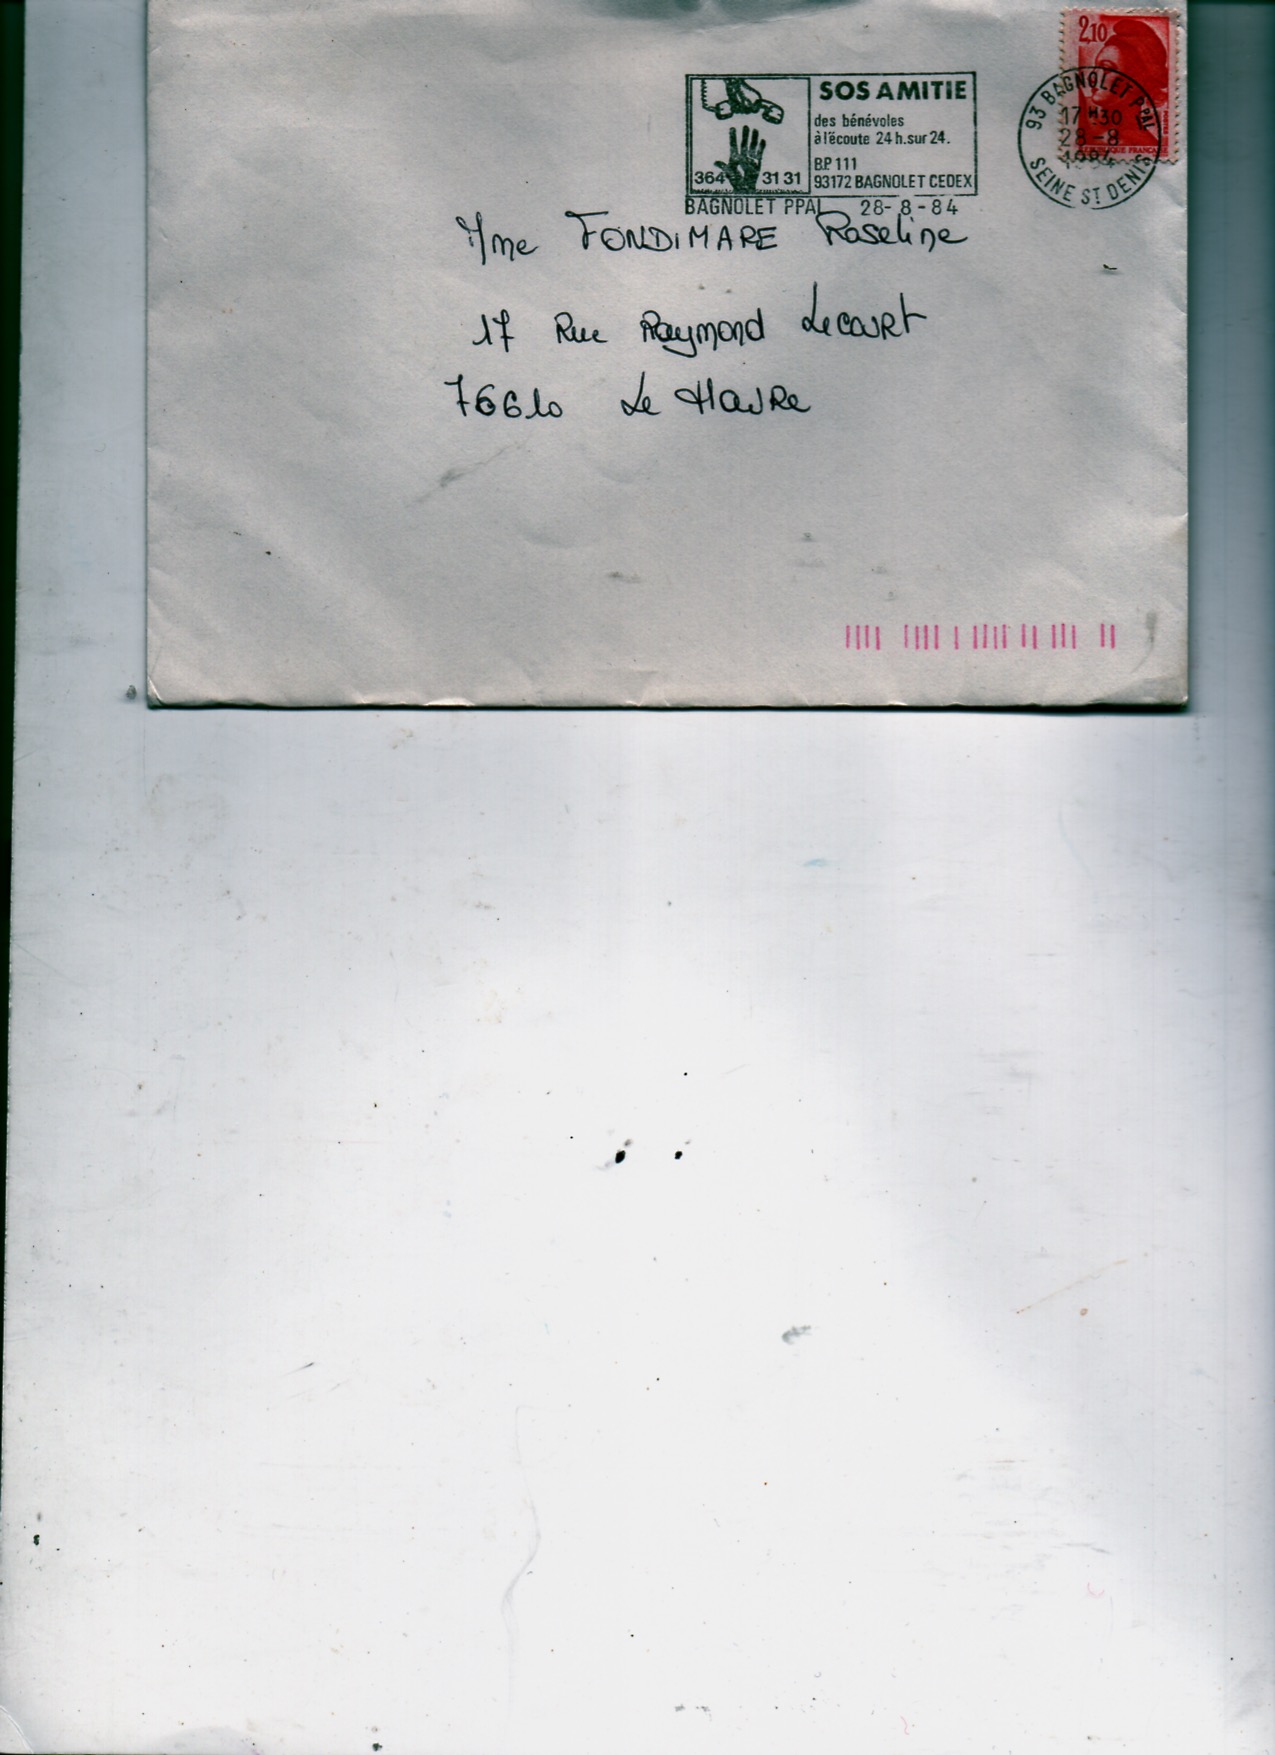 2,10
SOS AMITIE
des bénévoles
à l'écoute 24 h. sur 24.
B.P 111
93172 BAGNOLET CEDEX
364 31 31
BAGNOLET PPAL 28-8-84
93 BAGNOLET PPAL
17H30
28-8
1984
SEINE ST DENIS
Mme FONDIMARE Roseline
17 Rue Raymond Lecourt
76610 Le Havre